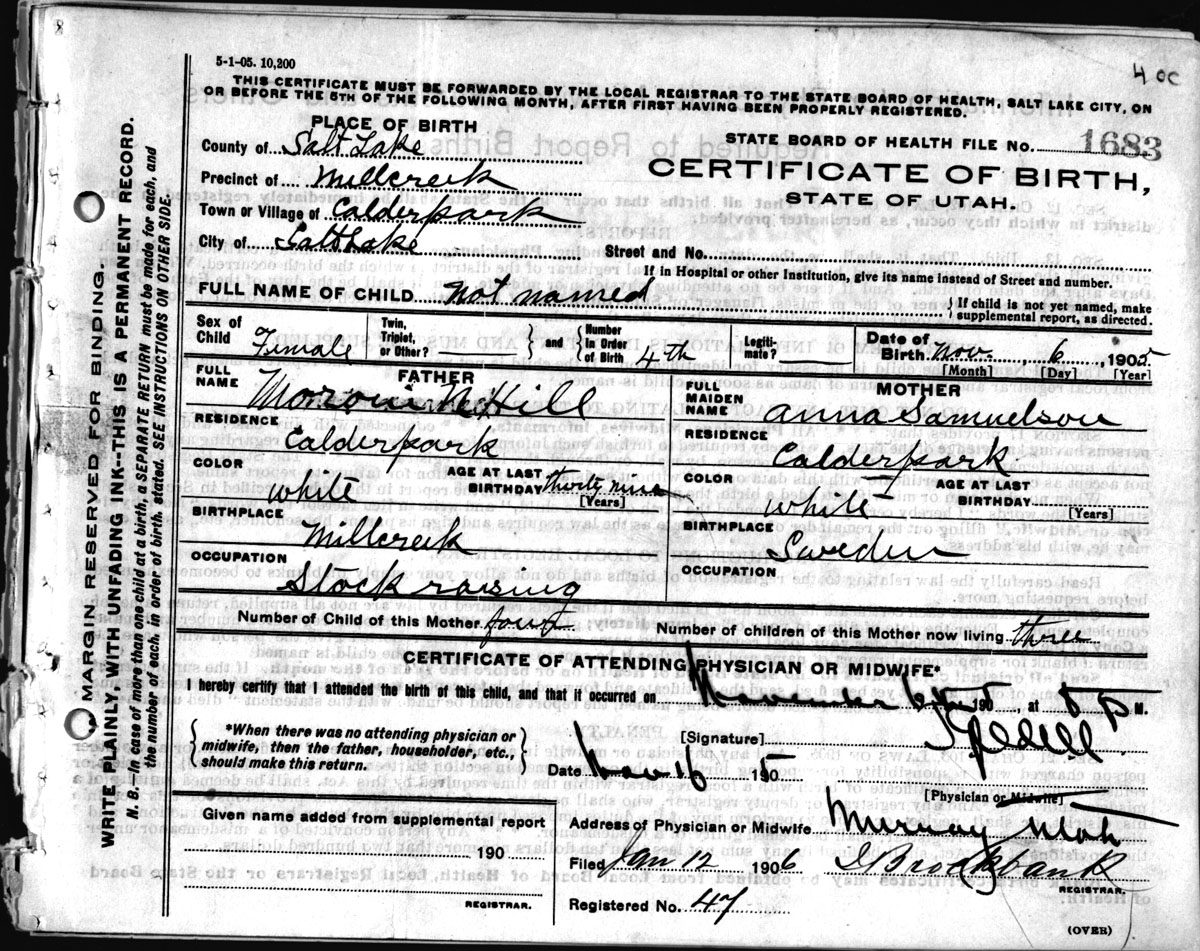 4 oc
5-1-05. 10,200
THIS CERTIFICATE MUST BE FORWARDED BY THE LOCAL REGISTRAR TO THE STATE BOARD OF HEALTH, SALT LAKE CITY, ON
OR BEFORE THE 5TH OF THE FOLLOWING MONTH, AFTER FIRST HAVING BEEN PROPERLY REGISTERED.
MARGIN RESERVED FOR BINDING.
WRITE PLAINLY, WITH UNFADING INK--THIS IS A PERMANENT RECORD.
N. B.—In case of more than one child at a birth, a SEPARATE RETURN must be made for each, and
the number of each, in order of birth, stated. SEE INSTRUCTIONS ON OTHER SIDE.
PLACE OF BIRTH
County of Salt Lake
Precinct of Millcreek
Town or Village of Calderpark
City of Salt Lake
STATE BOARD OF HEALTH FILE NO. 1683
CERTIFICATE OF BIRTH,
STATE OF UTAH.
Street and No.
If in Hospital or other Institution, give its name instead of Street and number.
FULL NAME OF CHILD not named
If child is not yet named, make
supplemental report, as directed.
Sex of Child Female
Twin, Triplet, or Other? —
and Number in Order of Birth 4th
Legiti-mate? —
Date of Birth Nov. 6, 1905
[Month] [Day] [Year]
FATHER
FULL NAME Moroni Hill
RESIDENCE Calderpark
COLOR white
AGE AT LAST BIRTHDAY thirty nine
[Years]
BIRTHPLACE Millcreek
OCCUPATION Stock raising
MOTHER
FULL MAIDEN NAME Anna Samuelson
RESIDENCE Calderpark
COLOR white
AGE AT LAST BIRTHDAY
[Years]
BIRTHPLACE Sweden
OCCUPATION
Number of Child of this Mother four
Number of children of this Mother now living three
CERTIFICATE OF ATTENDING PHYSICIAN OR MIDWIFE*
I hereby certify that I attended the birth of this child, and that it occurred on November 6 190, at 8 P M.
*When there was no attending physician or
midwife, then the father, householder, etc.,
should make this return.
[Signature]
Date Nov 16 1905
[Physician or Midwife]
Address of Physician or Midwife Murray Utah
Given name added from supplemental report
190
REGISTRAR.
Filed Jan 12 1906 Brockbank
REGISTRAR.
Registered No. 47
(OVER)